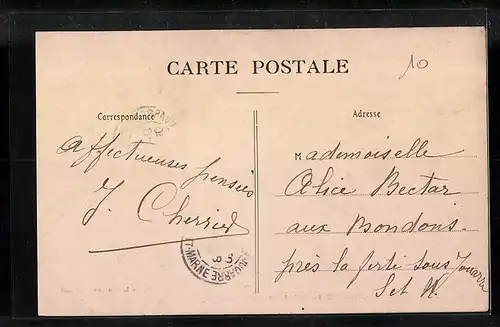 CARTE POSTALE
10
Correspondance
Affectueuses pensées
J.
Adresse
Mademoiselle
Alice Bectar
aux Bondons
près la ferté sous Jouarre
Set M.
JOUARRE
ET-MARNE